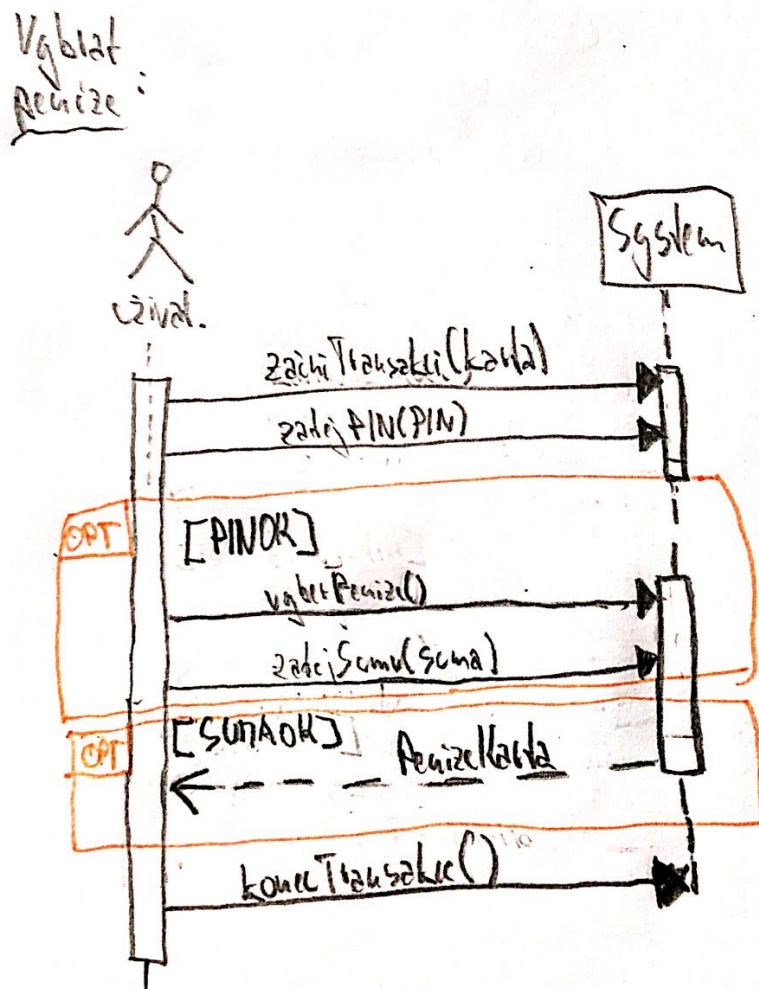 Vybrat
penize:
uživat.
System
začniTransakci(karta)
zadejPIN(PIN)
OPT
[PINOK]
vyberPenize()
zadejSumu(suma)
OPT
[SUMAOK]
PenizeKarta
konecTransakce()